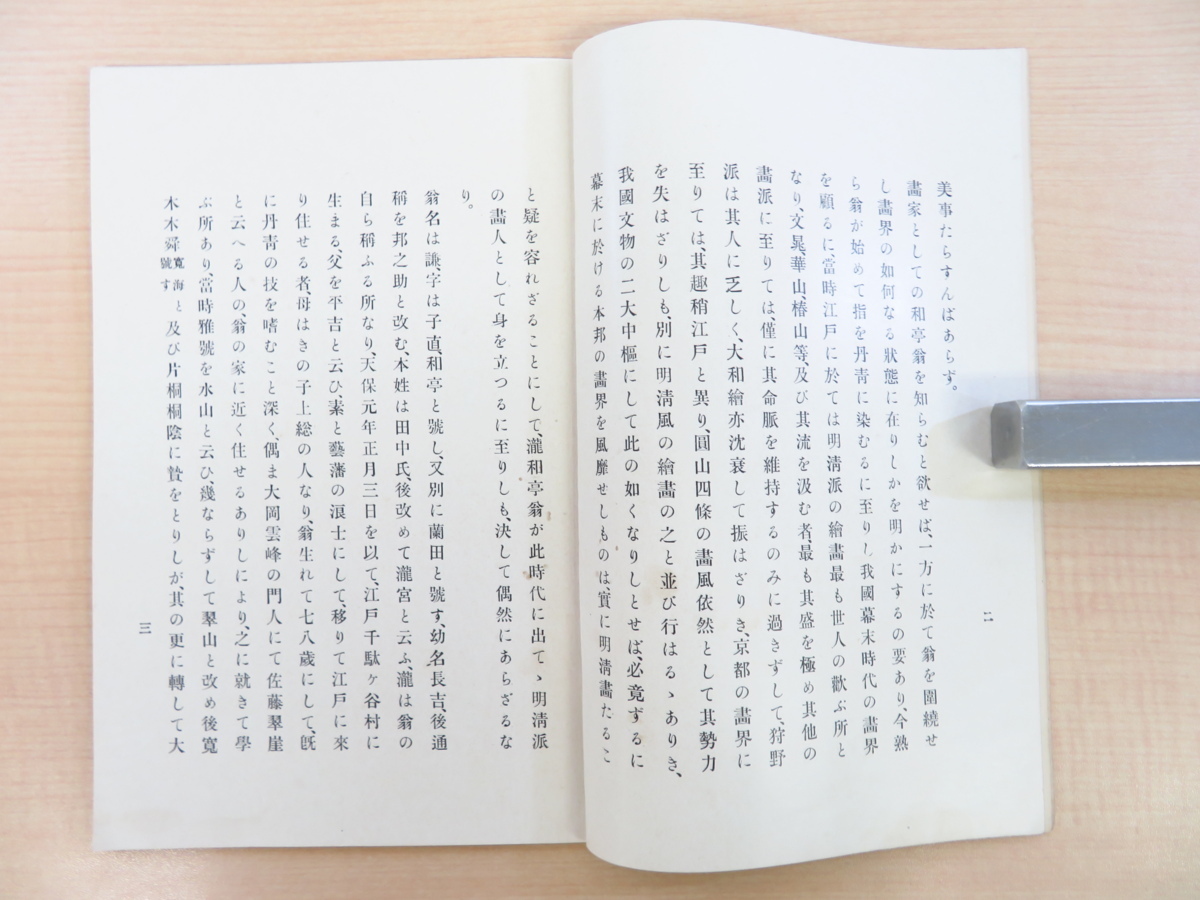 美事たらすんばあらず。
畵家としての和亭翁を知らむと欲せば、一方に於て翁を圍繞せ
し畵界の如何なる狀態に在りしかを明かにするの要あり、今熟
ら翁が始めて指を丹靑に染むるに至りし我國幕末時代の畵界
を顧るに、當時江戸に於ては明淸派の繪畵最も世人の歡ぶ所と
なり、文晁、華山、椿山等、及び其流を汲む者、最も其盛を極め其他の
畵派に至りては、僅に其命脈を維持するのみに過きずして、狩野
派は其人に乏しく、大和繪亦沈衰して振はざりき、京都の畵界に
至りては、其趣稍江戸と異り、圓山四條の畵風依然として其勢力
を失はざりしも、別に明淸風の繪畵の之と並び行はるゝありき、
我國文物の二大中樞にして此の如くなりしとせば、必竟するに
幕末に於ける本邦の畵界を風靡せしものは、實に明淸畵たるこ
二
と疑を容れざることにして、瀧和亭翁が此時代に出てゝ明淸派
の畵人として身を立つるに至りしも、決して偶然にあらざるな
り。
翁名は謙、字は子直、和亭と號し、又別に蘭田と號す、幼名長吉、後通
稱を邦之助と改む、本姓は田中氏、後改めて瀧宮と云ふ、瀧は翁の
自ら稱ふる所なり、天保元年正月三日を以て、江戸千駄ヶ谷村に
生まる、父を平吉と云ひ、素と藝藩の浪士にして、移りて江戸に來
り住せる者、母はきの子上総の人なり、翁生れて七八歳にして、旣
に丹靑の技を嗜むこと深く偶ま大岡雲峰の門人にて佐藤翠崖
と云へる人の、翁の家に近く住せるありしにより、之に就きて學
ぶ所あり、當時雅號を水山と云ひ、幾ならずして翠山と改め後寛
木木舜寛海と號す及び片桐桐陰に贄をとりしが、其の更に轉して大
三